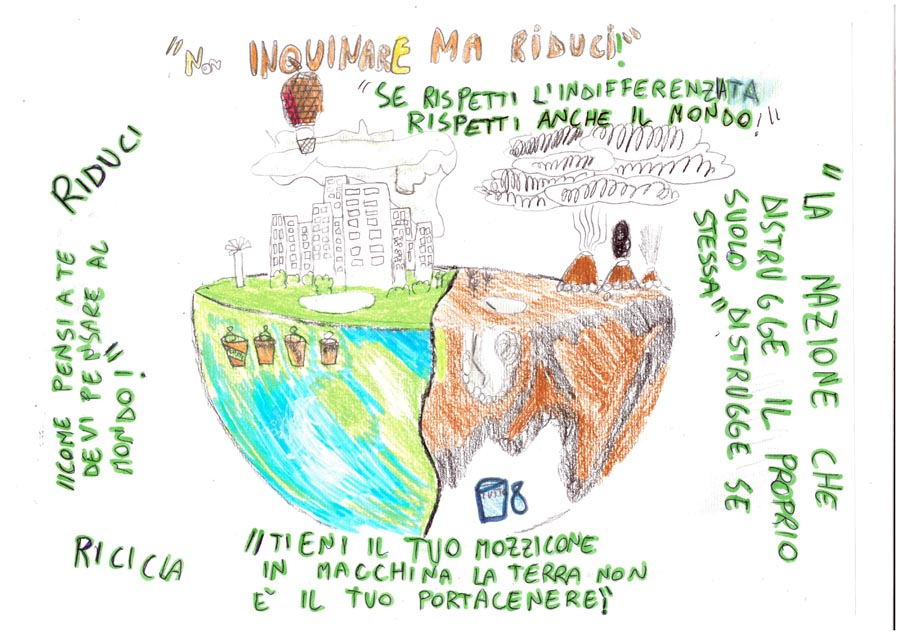 "NON INQUINARE MA RIDUCI!"
"SE RISPETTI L'INDIFFERENZIATA
RISPETTI ANCHE IL MONDO!"
RIDUCI
"COME PENSIATE
DEVI PENSARE AL
MONDO!"
"LA NAZIONE CHE
DISTRUGGE IL PROPRIO
SUOLO DISTRUGGE SE
STESSA"
RICICLA
"TIENI IL TUO MOZZICONE
IN MACCHINA LA TERRA NON
È IL TUO PORTACENERE!"